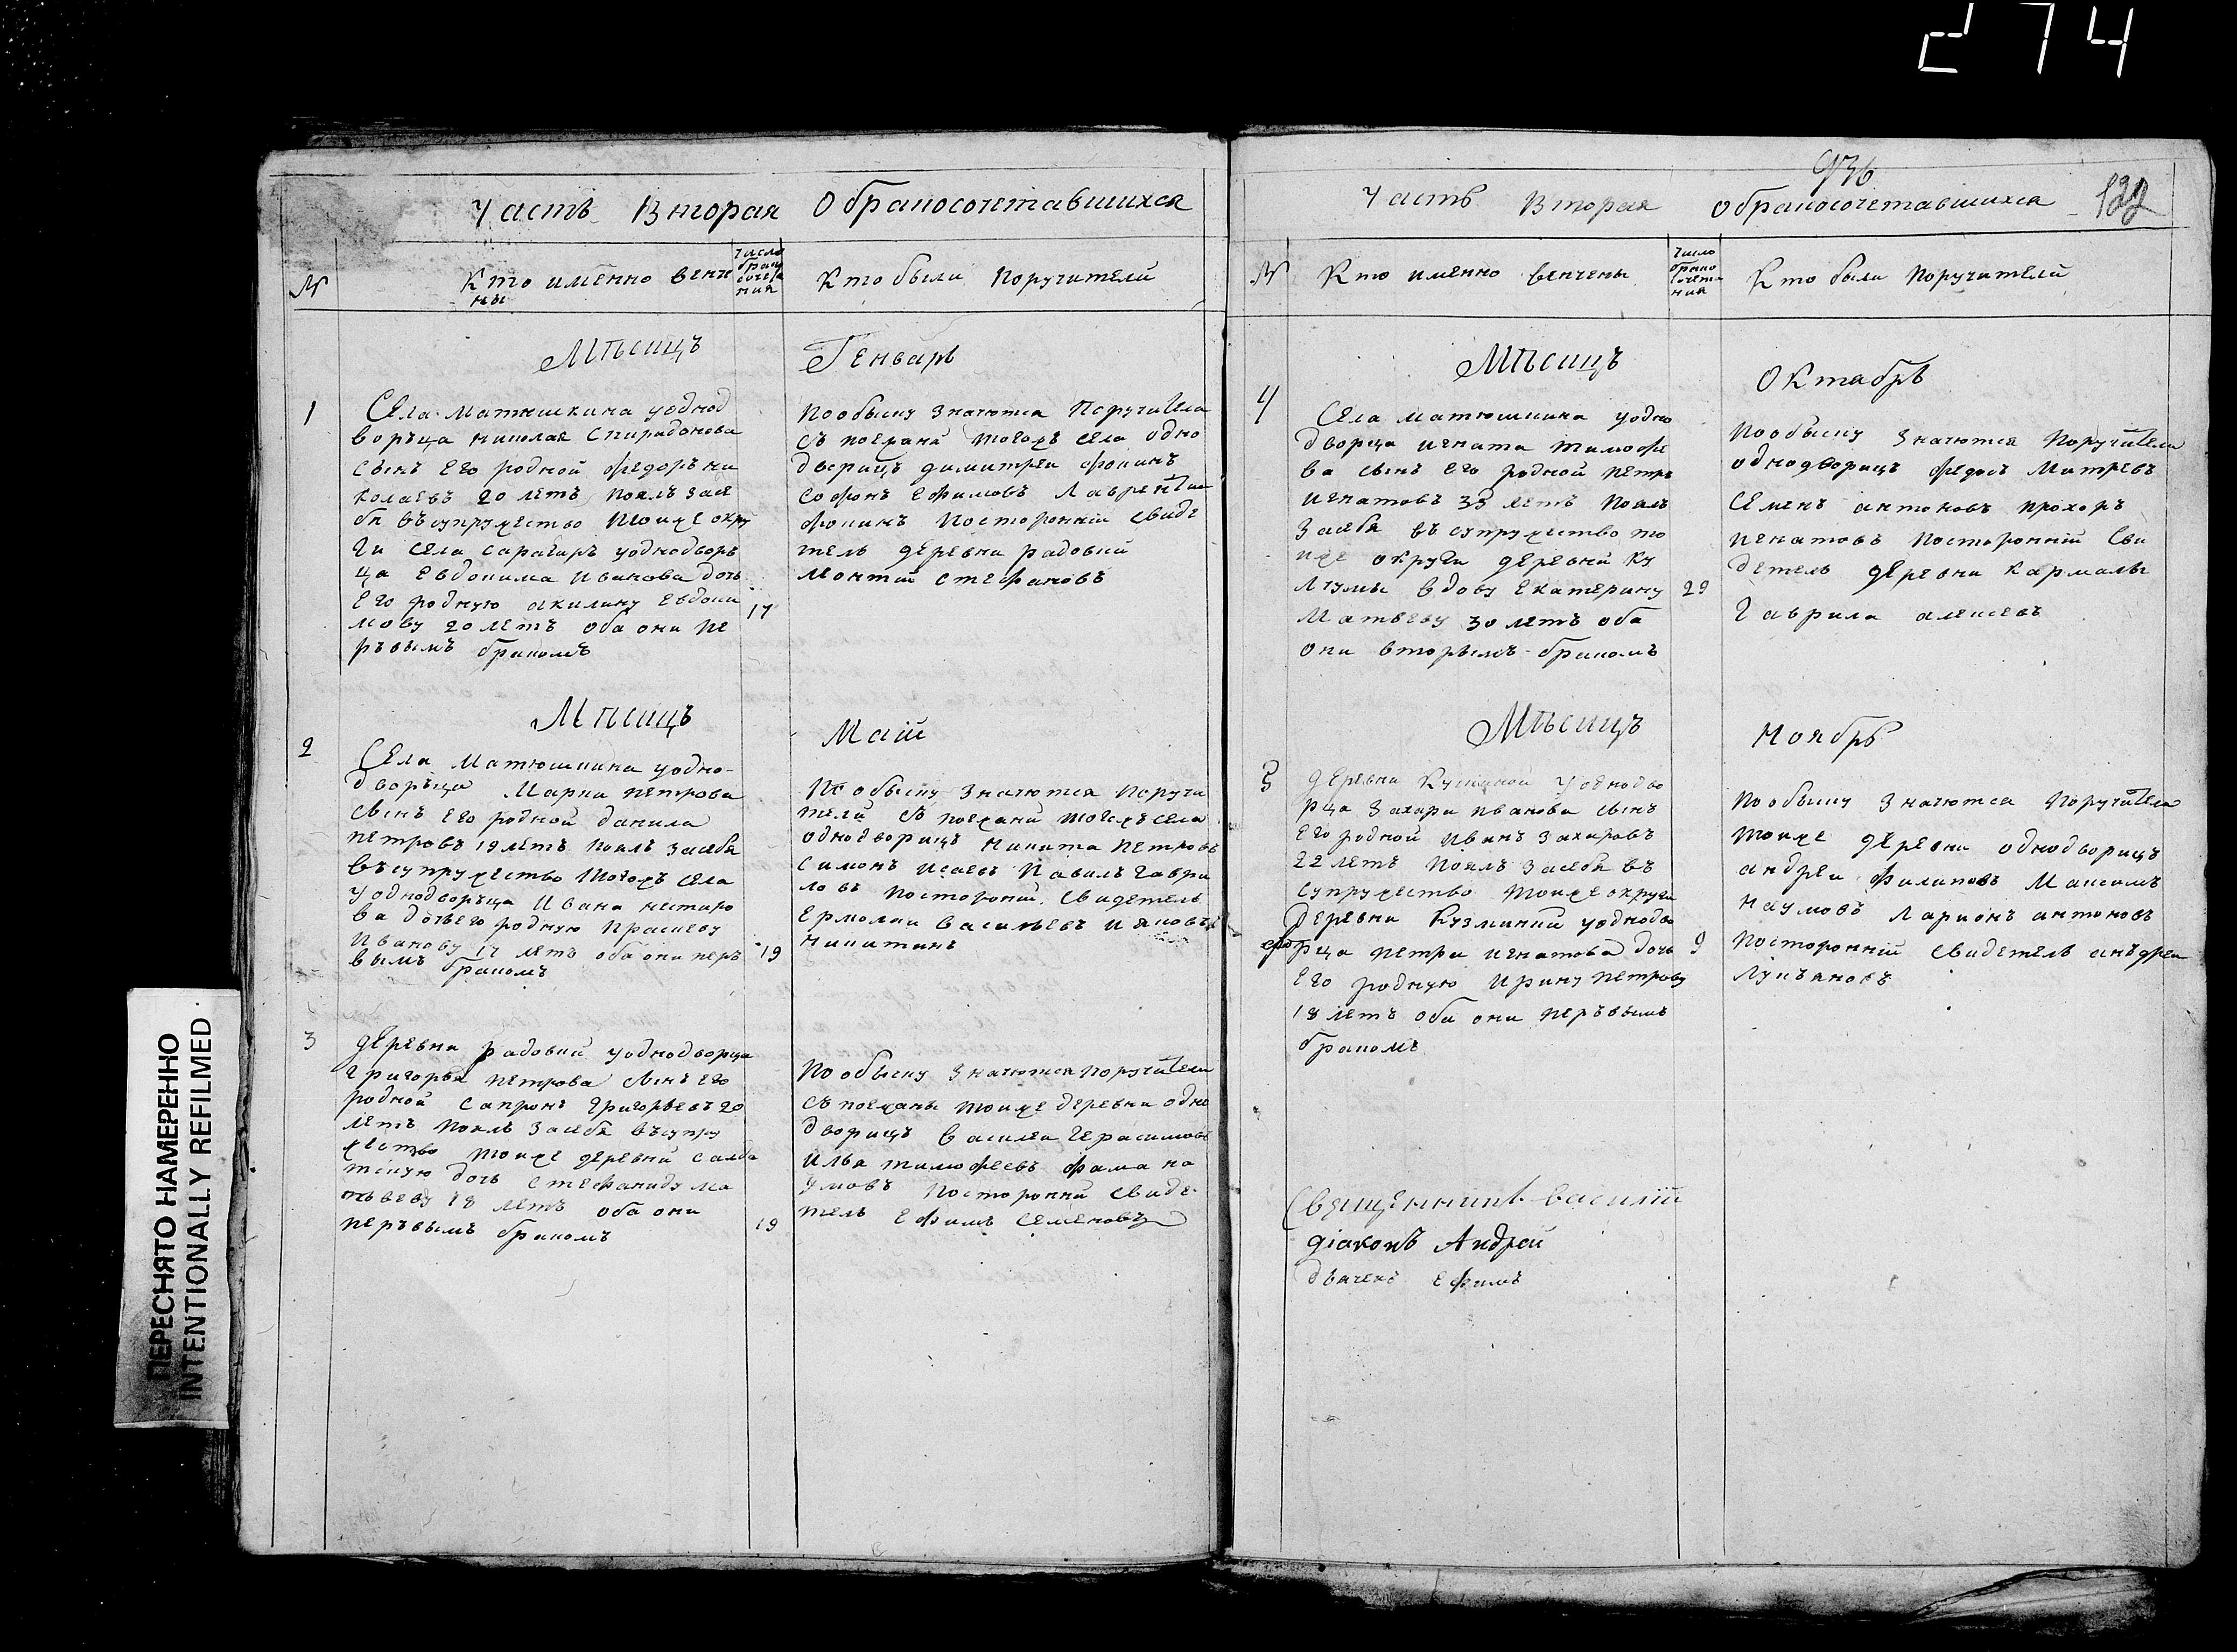 274
Часть Вторая Обракосочетавшихся
№
Кто именно венче
ны
Число
брако
сочета
ния
Кто были Поручители
Мѣсицъ
Генварь
1
Села Матюшкина уоднод
воръца николая Спиридонова
сынъ Его родной федоръ ни
колаевъ 20 летъ поялъ засе
бя въсупружество Тоиже окру
ги села уоднодворъ
ца Евдокима Иванова дочь
Его родную акилину Евдоки
мову 20 летъ оба они пе
ръвымъ бракомъ
17
Пообыску значются Поручители
съ поезжанъ тогожъ села одно
дворицъ димитреи фокинъ
софонъ Ефимовъ Лаврентии
фокинъ Посторонни свиде
тель деревни радовки
леонтии стефановъ
Мѣсицъ
Маии
2
Села Матюшкина уодно-
дворъца Марка петрова
сынъ Его родной данила
петровъ 19 летъ поялъ засебя
въсупружество Тогожъ села
уоднодворъца Ивана нестеро
ва дочьего родную Прасковю
Иванову 17 летъ оба они перъ
вымъ бракомъ
19
По обыску значются поручи
тели съ поезжани тогожъ села
однодворицъ никита петровъ
симонъ исаевъ Павилъ гаври
ловъ посторонни свидетель
Ермолаи василиевъ
никитинъ
3
деревни радовки уоднодворца
григоръя петрова сынъ его
родной сапронъ григорьевъ 20
летъ поялъ засебя въсупру
жество тоиже деревни салда
тскую дочь стефаниду ма
тьвеву 18 летъ оба они
перъвымъ бракомъ
19
По обыску значются поручители
съ поезжаны тоиже деревни одно
дворицъ василеи герасимовъ
илья тимофеевъ фама на
умовъ посторонни свиде-
тель Ефимъ семеновъ
936
Часть Вторая обракосочетавшихся
122
№
Кто именно венчены
Число
брако
сочета
ния
Кто были поручители
Мѣсицъ
Октабрь
4
Села матюшкина уодно
дворца игната тимофе
ва сынъ его родной петръ
игнатовъ 33 летъ поялъ
засебя въ супружество то
иже округи деревни ку
лчумы вдову Екатерину
Матвеву 30 летъ оба
они вторымъ бракомъ
29
Пообыску значются поручители
однодворицъ федосъ Митревъ
семенъ антоновъ прохоръ
игнатовъ посторонни сви
детель деревни кармалы
гаврила алексевъ
Мѣсицъ
Ноябрь
5
деревни уоднодво
рца Захара иванова сынъ
его родной Иванъ захаровъ
22 летъ поялъ засебя въ
супружество тоиже округи
деревни Кузминки уоднодво
рца петра игнатова дочь
его родную ирину петрову
18 летъ оба они перъвымъ
бракомъ
9
Пообыску значются поручители
тоиже деревни однодворицъ
андреи филиповъ Максимъ
наумовъ ларионъ антоновъ
посторонни свидетель анъдреи
лукъяновъ
Священникъ василіи
діаконъ Андрей
дьячекъ ефимъ
ПЕРЕСНЯТО НАМЕРЕННО
INTENTIONALLY REFILMED.